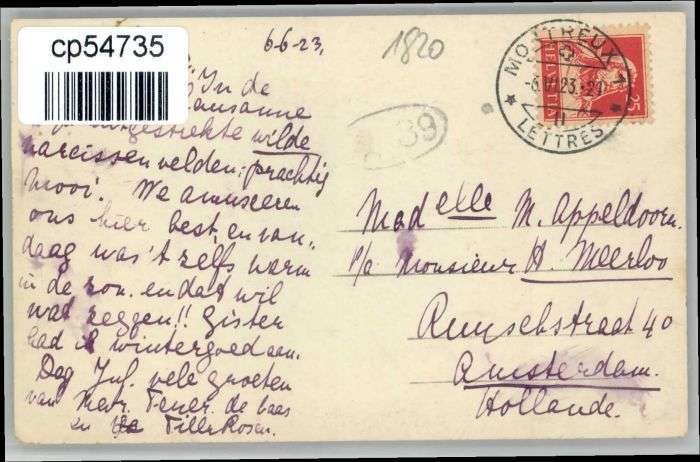 cp54735
6-6-23,
1820
In de
Lausanne
uitgestrekte wilde
narcissenvelden: prachtig
mooi. We amuseeren
ons hier best, en van-
daag was 't zelfs warm
in de zon. en dat wil
wat zeggen!! Gister
had ik wintergoed aan.
Dag Juf. vele groeten
van Mevr. de baas
en
39
MONTREUX 1
-6.VI.23.-21
II
LETTRES
HELVETIA
25
Madelle M. Appeldoorn.
p/a Monsieur H. Meerloo
Ruyschstraat 40
Amsterdam.
Hollande.